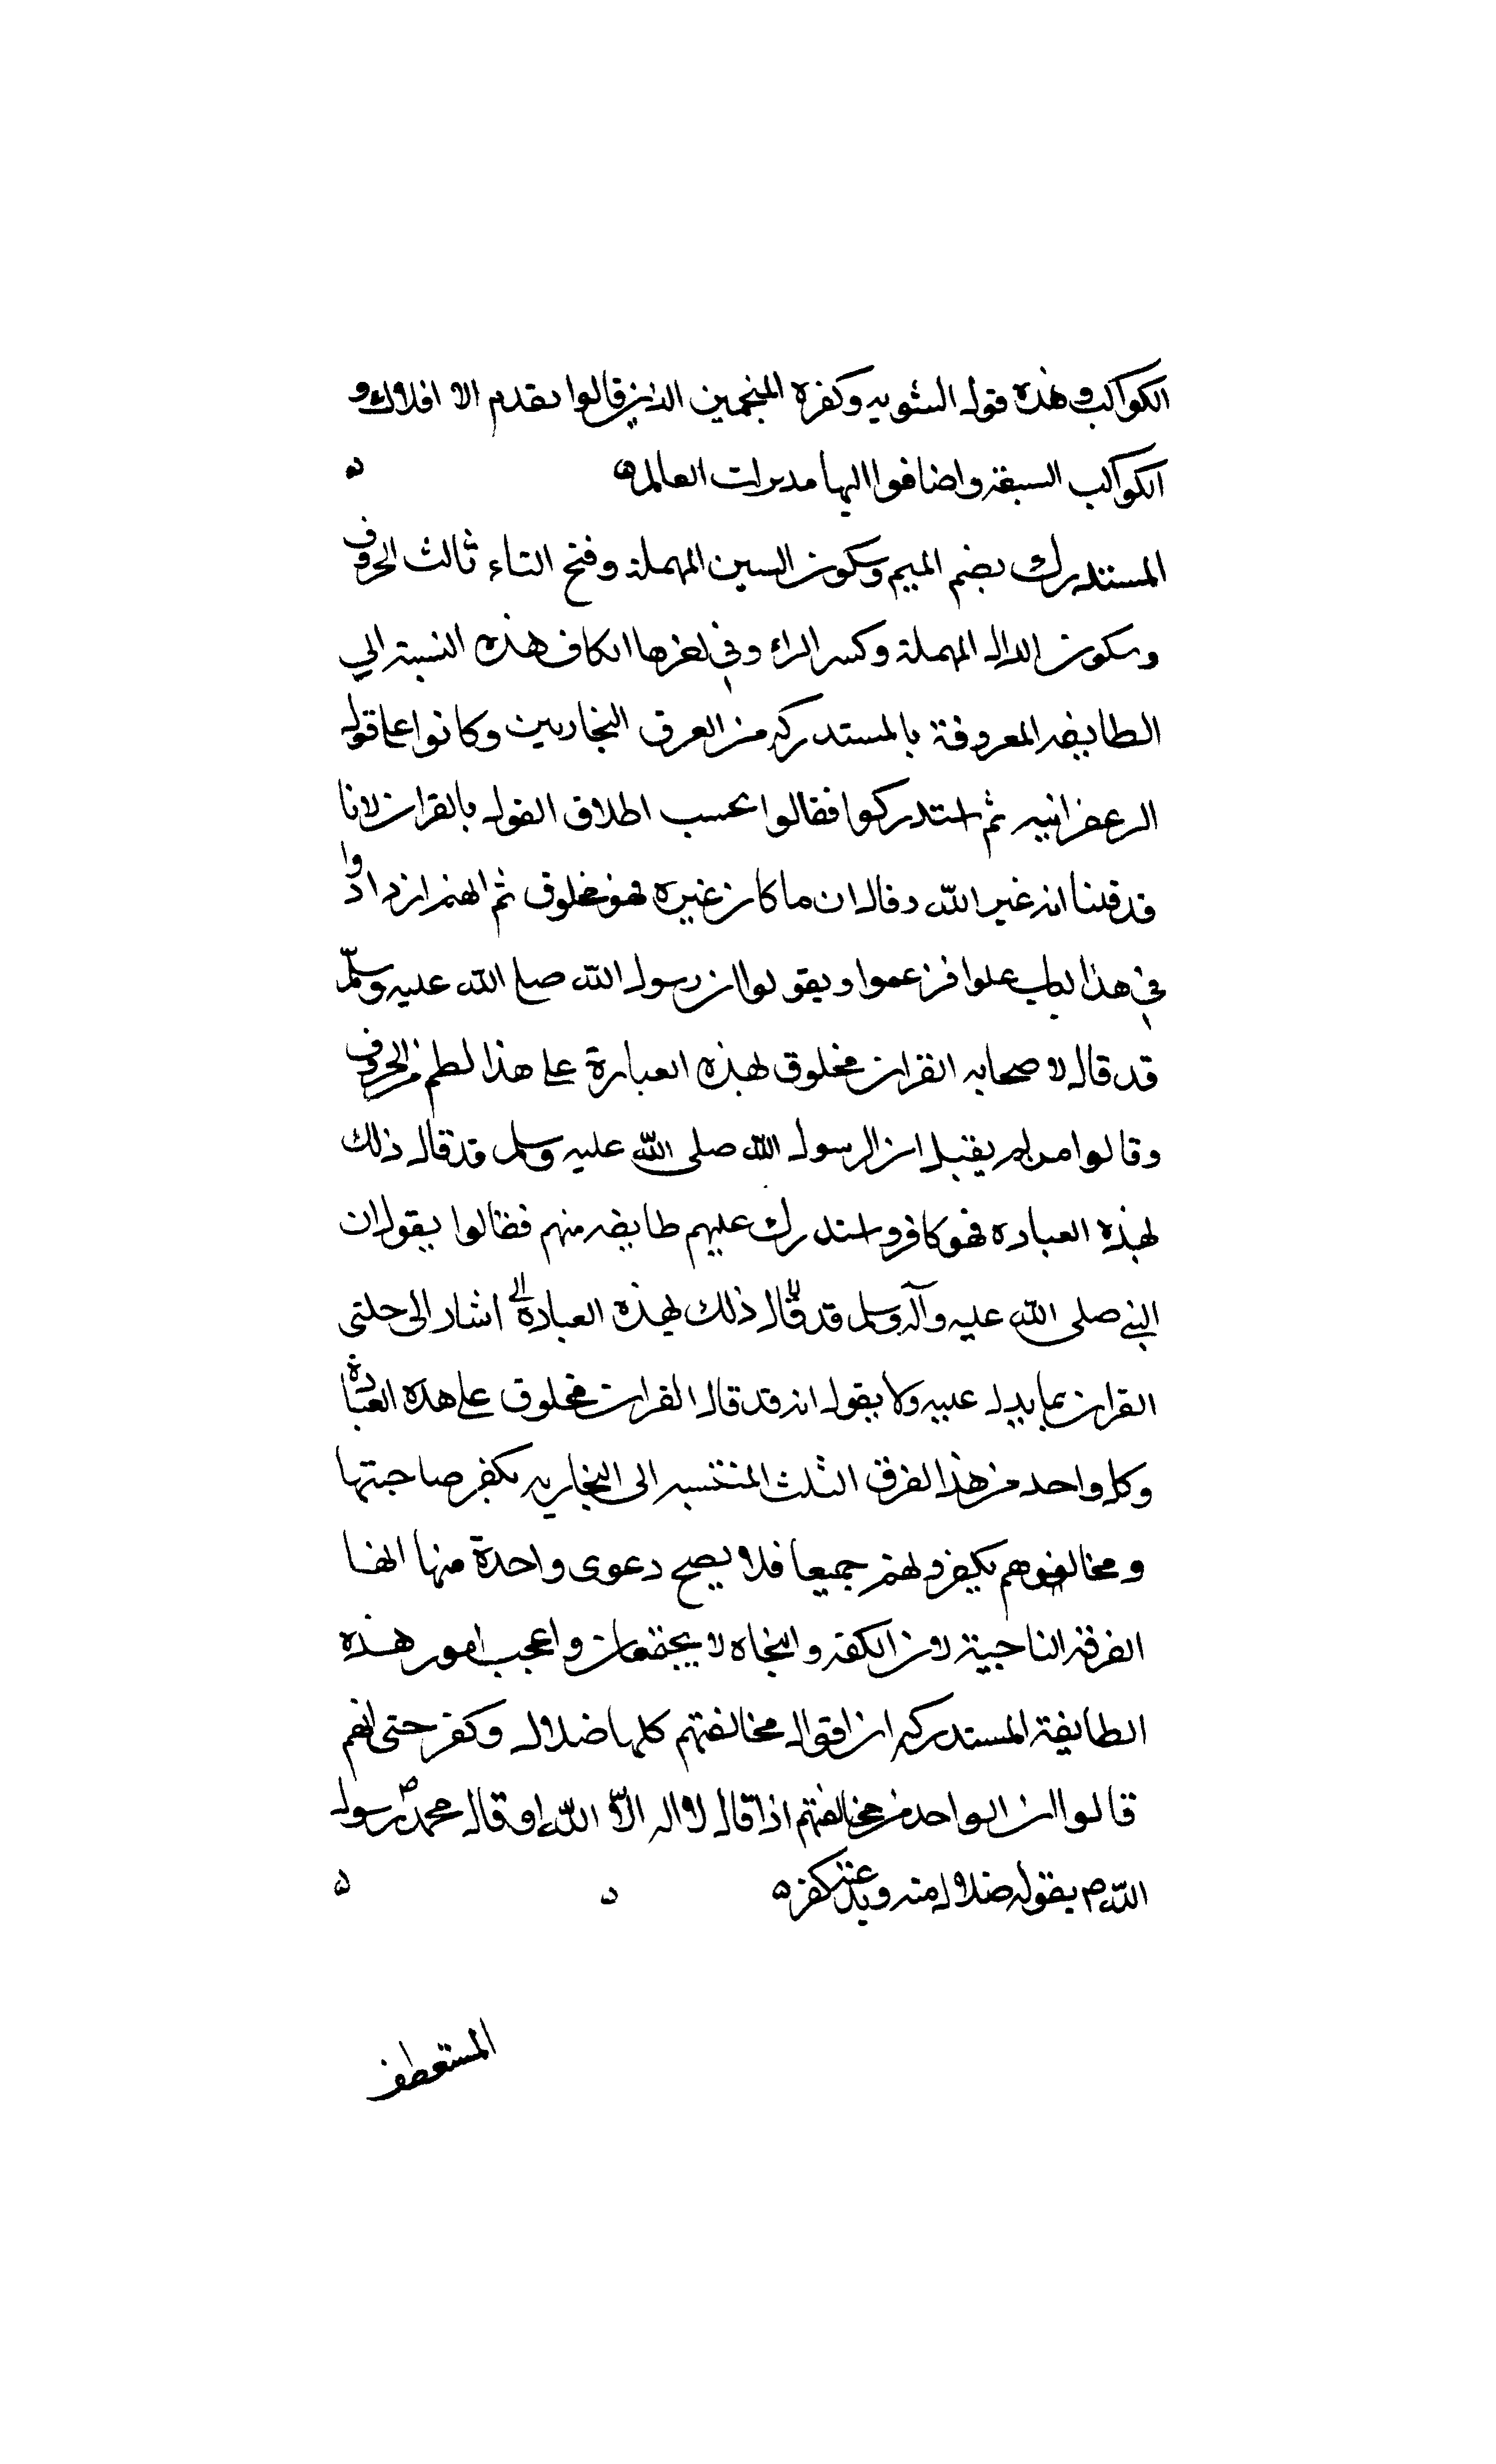 الكواكب وهذه قول الثنويه وكفره المنجمين الذين قالوا بقدم الا افلاك و
الكواكب السبعة واضافوا اليها مدبرات العالم
المستدرك بضم الميم وسكون السين المهملة وفتح التاء ثالث الحروف
وسكون الدال المهملة وكسر الراء وفي اخرها الكاف هذه النسبة الي
الطايفه المعروفة بالمستدركه من الفرق النجاريين وكانوا على قول
الزعفرانيه ثم استدركوا فقالوا بحسب اطلاق القول بالقران لانا
قد قلنا انه غير الله وقال ان ما كان غيره فهو مخلوق ثم انهم ازدادوا
في هذا الباب علوا فزعموا ويقولوا ان رسول الله صلع الله عليه وسلم
قد قال لاصحابه القران مخلوق بهذه العبارة على هذا لطم من الحروف
وقالوا من لم يقبل ان الرسول الله صلى الله عليه وسلم قد قال ذلك
بهذه العباره فهو كافر واستدرك عليهم طايفه منهم فقالوا يقول ان
النبي صلى الله عليه وآله وسلم قد قال ذلك بهذه العبادة الى اشار الى
القران بما يدل عليه ولا يقول انه قد قال القران مخلوق على هذه العبادة
وكل واحد من هذا الفرق الثلث المنتسبه الى النجاريه يكفر صاحبتها
ومخالفوهم يكفرو لهم جميعا فلا يصح دعوى واحدة منها انها
الفرقة الناجية لان الكفه والنجاه لا يجتمعان واعجب امور هذه
الطايفة المستدركه ان اقوال مخالفتهم كلها ضلال وكفر حتى انهم
قالوا ان الواحد من مخالفتهم اذا قال لا اله الا الله او قال محمد رسول
الله ص يقول ضلال منه وبدعته كفره
المستعطف